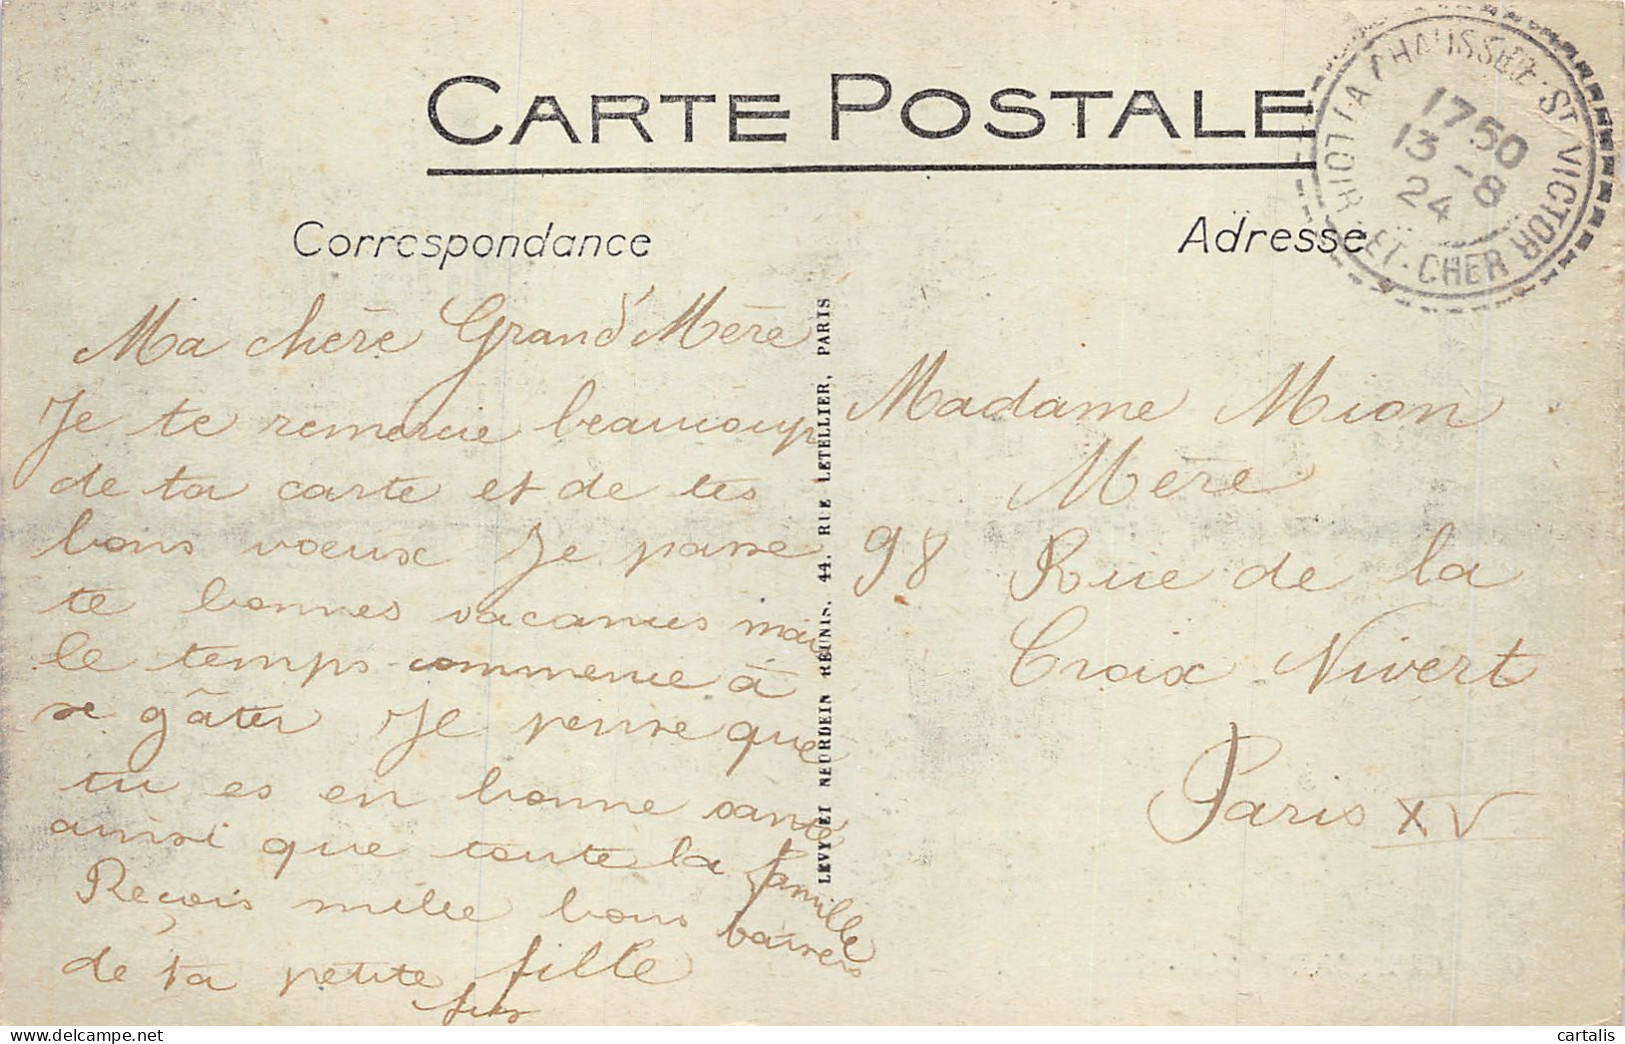 CARTE POSTALE
Correspondance
Adresse
LA CHAUSSÉE-ST VICTOR
LOIR-ET-CHER
17 50
13 -8
24
Ma chère Grand'Mère
Je te remercie beaucoup
de ta carte et de tes
bons vœux Je passe
te bonnes vacances mais
le temps commence à
se gâter Je pense que
tu es en bonne santé
ainsi que toute la famille
Reçois mille bons baisers
de ta petite fille
LEVY ET NEURDEIN RÉUNIS, 44, RUE LETELLIER, PARIS
Madame Mion
Mère
98 Rue de la
Croix Nivert
Paris XV
cartalis